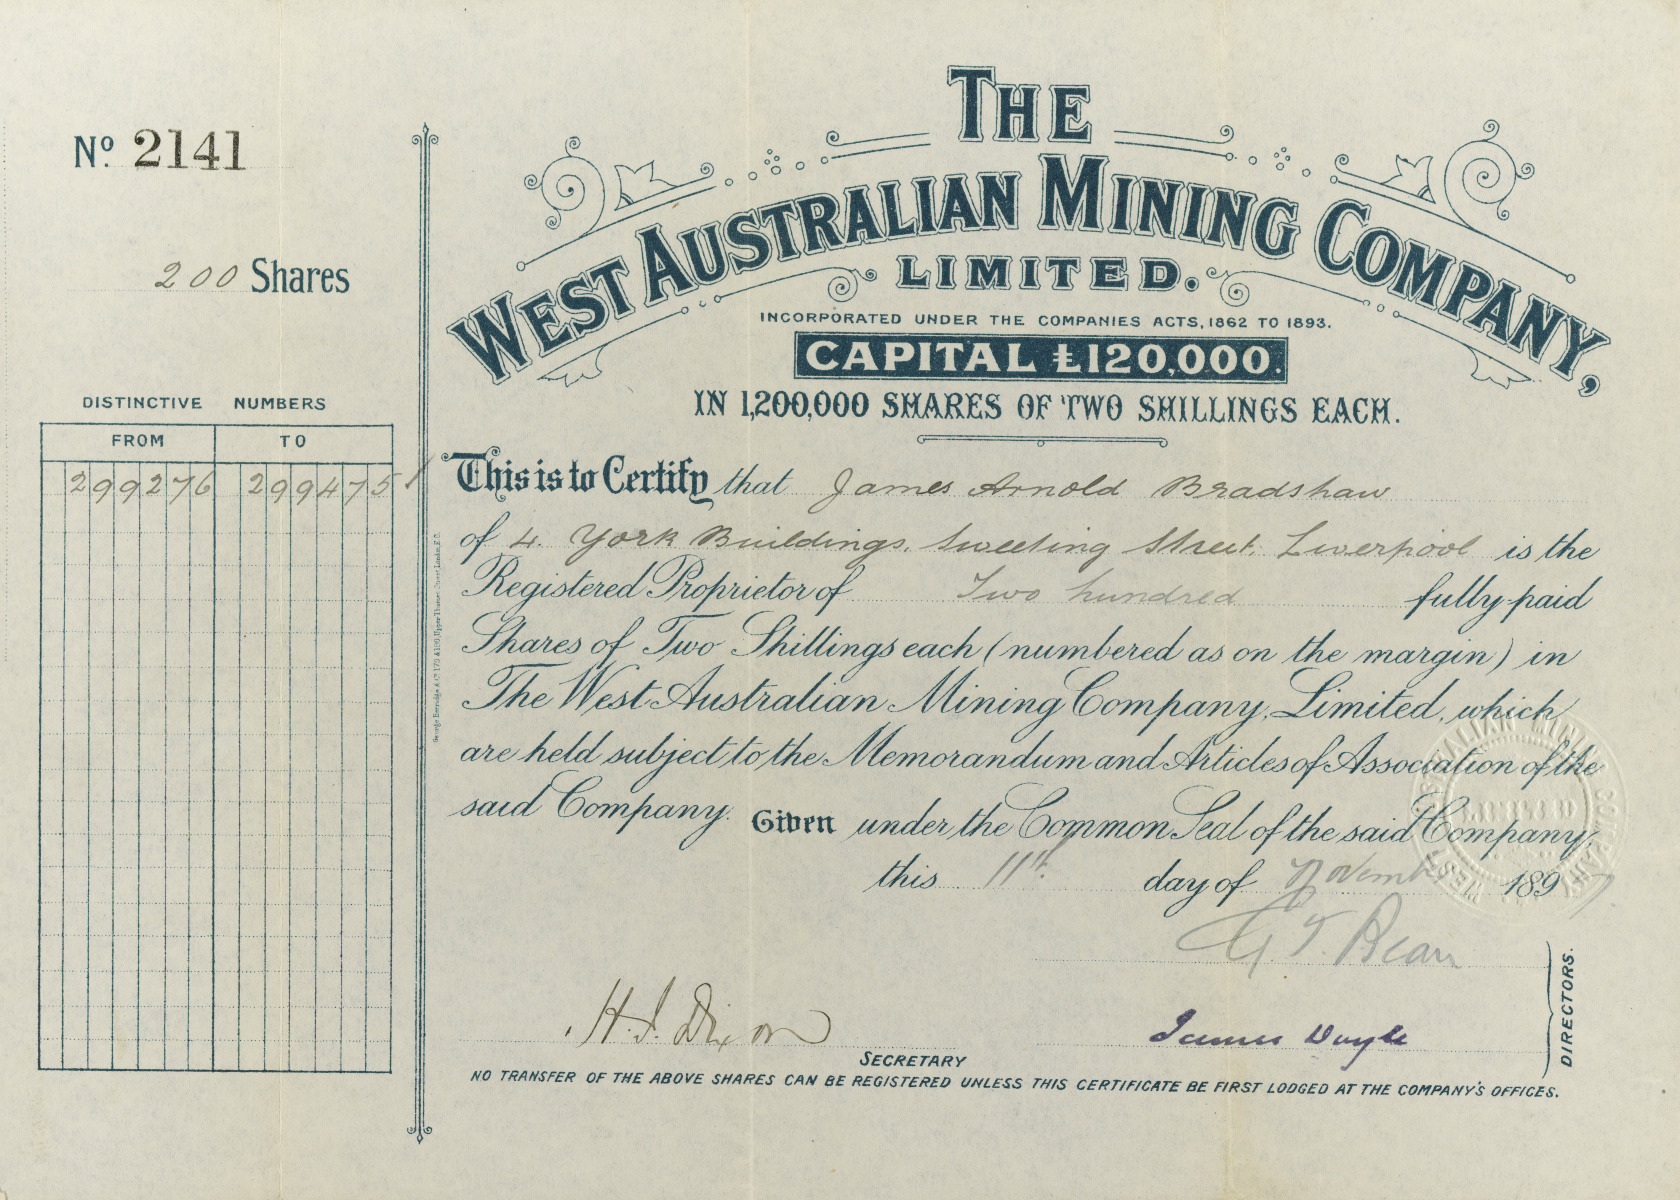 Nº 2141
200 Shares
DISTINCTIVE NUMBERS
FROM TO
299276 299475
THE
WEST AUSTRALIAN MINING COMPANY,
LIMITED.
INCORPORATED UNDER THE COMPANIES ACTS, 1862 TO 1893.
CAPITAL £120,000.
IN 1,200,000 SHARES OF TWO SHILLINGS EACH.
This is to Certify that James Arnold Bradshaw
of 4. York Buildings, Sweeting Street, Liverpool is the
Registered Proprietor of Two hundred fully paid
Shares of Two Shillings each (numbered as on the margin) in
The West Australian Mining Company, Limited, which
are held subject to the Memorandum and Articles of Association of the
said Company. Given under the Common Seal of the said Company,
this 11th day of November 1897
G T. Bean
H. S. Dixon
James Doyle
DIRECTORS.
SECRETARY
NO TRANSFER OF THE ABOVE SHARES CAN BE REGISTERED UNLESS THIS CERTIFICATE BE FIRST LODGED AT THE COMPANY'S OFFICES.